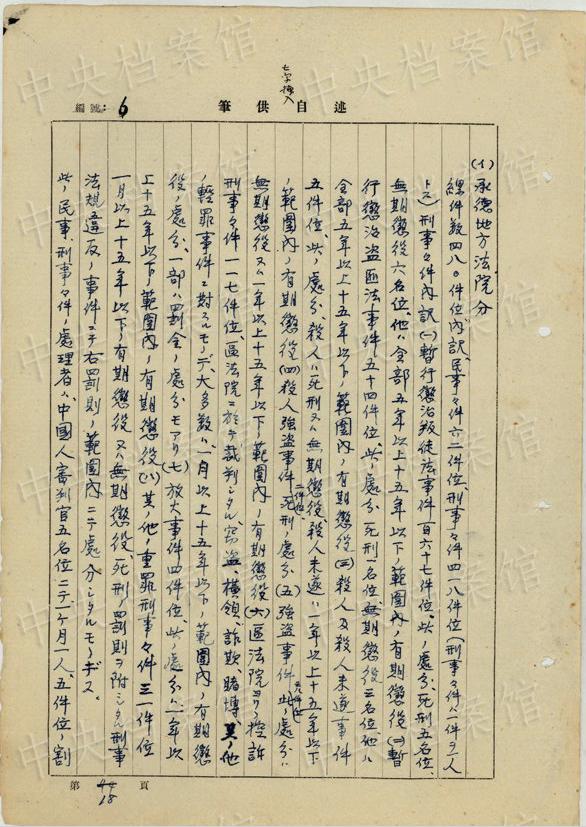 七字挿入
編號:6
筆供自述
(1)承德地方法院分
總件数四八〇件位、内訳、民事々件六二件位、刑事々件四一八件位(刑事々件ハ一件ヲ一人
トス)刑事々件内訳(一)暫行懲治叛徒法事件百六十七件位、此ノ処分、死刑五名位、
無期懲役六名位、他ハ全部五年以上十五年以下ノ範囲内ノ有期懲役(二)暫
行懲治盗匪法事件五十四件位、此ノ処分死刑一名位、無期懲役三名位他ハ
全部五年以上十五年以下ノ範囲内ノ有期懲役(三)殺人及殺人未遂事件
五件位、此ノ処分、殺人ハ死刑又ハ無期懲役、殺人未遂ハ一年以上十五年以下
ノ範囲内ノ有期懲役(四)殺人強盗事件二件位、死刑ノ処分(五)強盗事件此ノ処分ハ
無期懲役又ハ一年以上十五年以下ノ範囲内ノ有期懲役(六)区法院ヨリ控訴
刑事々件一一七件位、区法院ニ於テ裁判シタル窃盗、横領、詐欺、賭博、其ノ他
ノ軽罪事件ニ対スルモノデ、大多数ハ一月以上十五年以下ノ範囲内ノ有期懲
役ノ処分、一部ハ罰金ノ処分モアリ(七)放火事件四件位、此ノ処分ハ一年以
上十五年以下ノ範囲内ノ有期懲役(八)其ノ他ノ重罪刑事々件三一件位
一月以上十五年以下ノ有期懲役又ハ無期懲役、死刑ノ罰則ヲ附シタル刑事
法規違反ノ事件ニテ右罰則ノ範囲内ニテ処分シタルモノデス。
此ノ民事、刑事々件ノ処理者ハ中国人審判官五名位ニテ一ヶ月一人、五件位ノ割
第 18 頁
中央档案馆